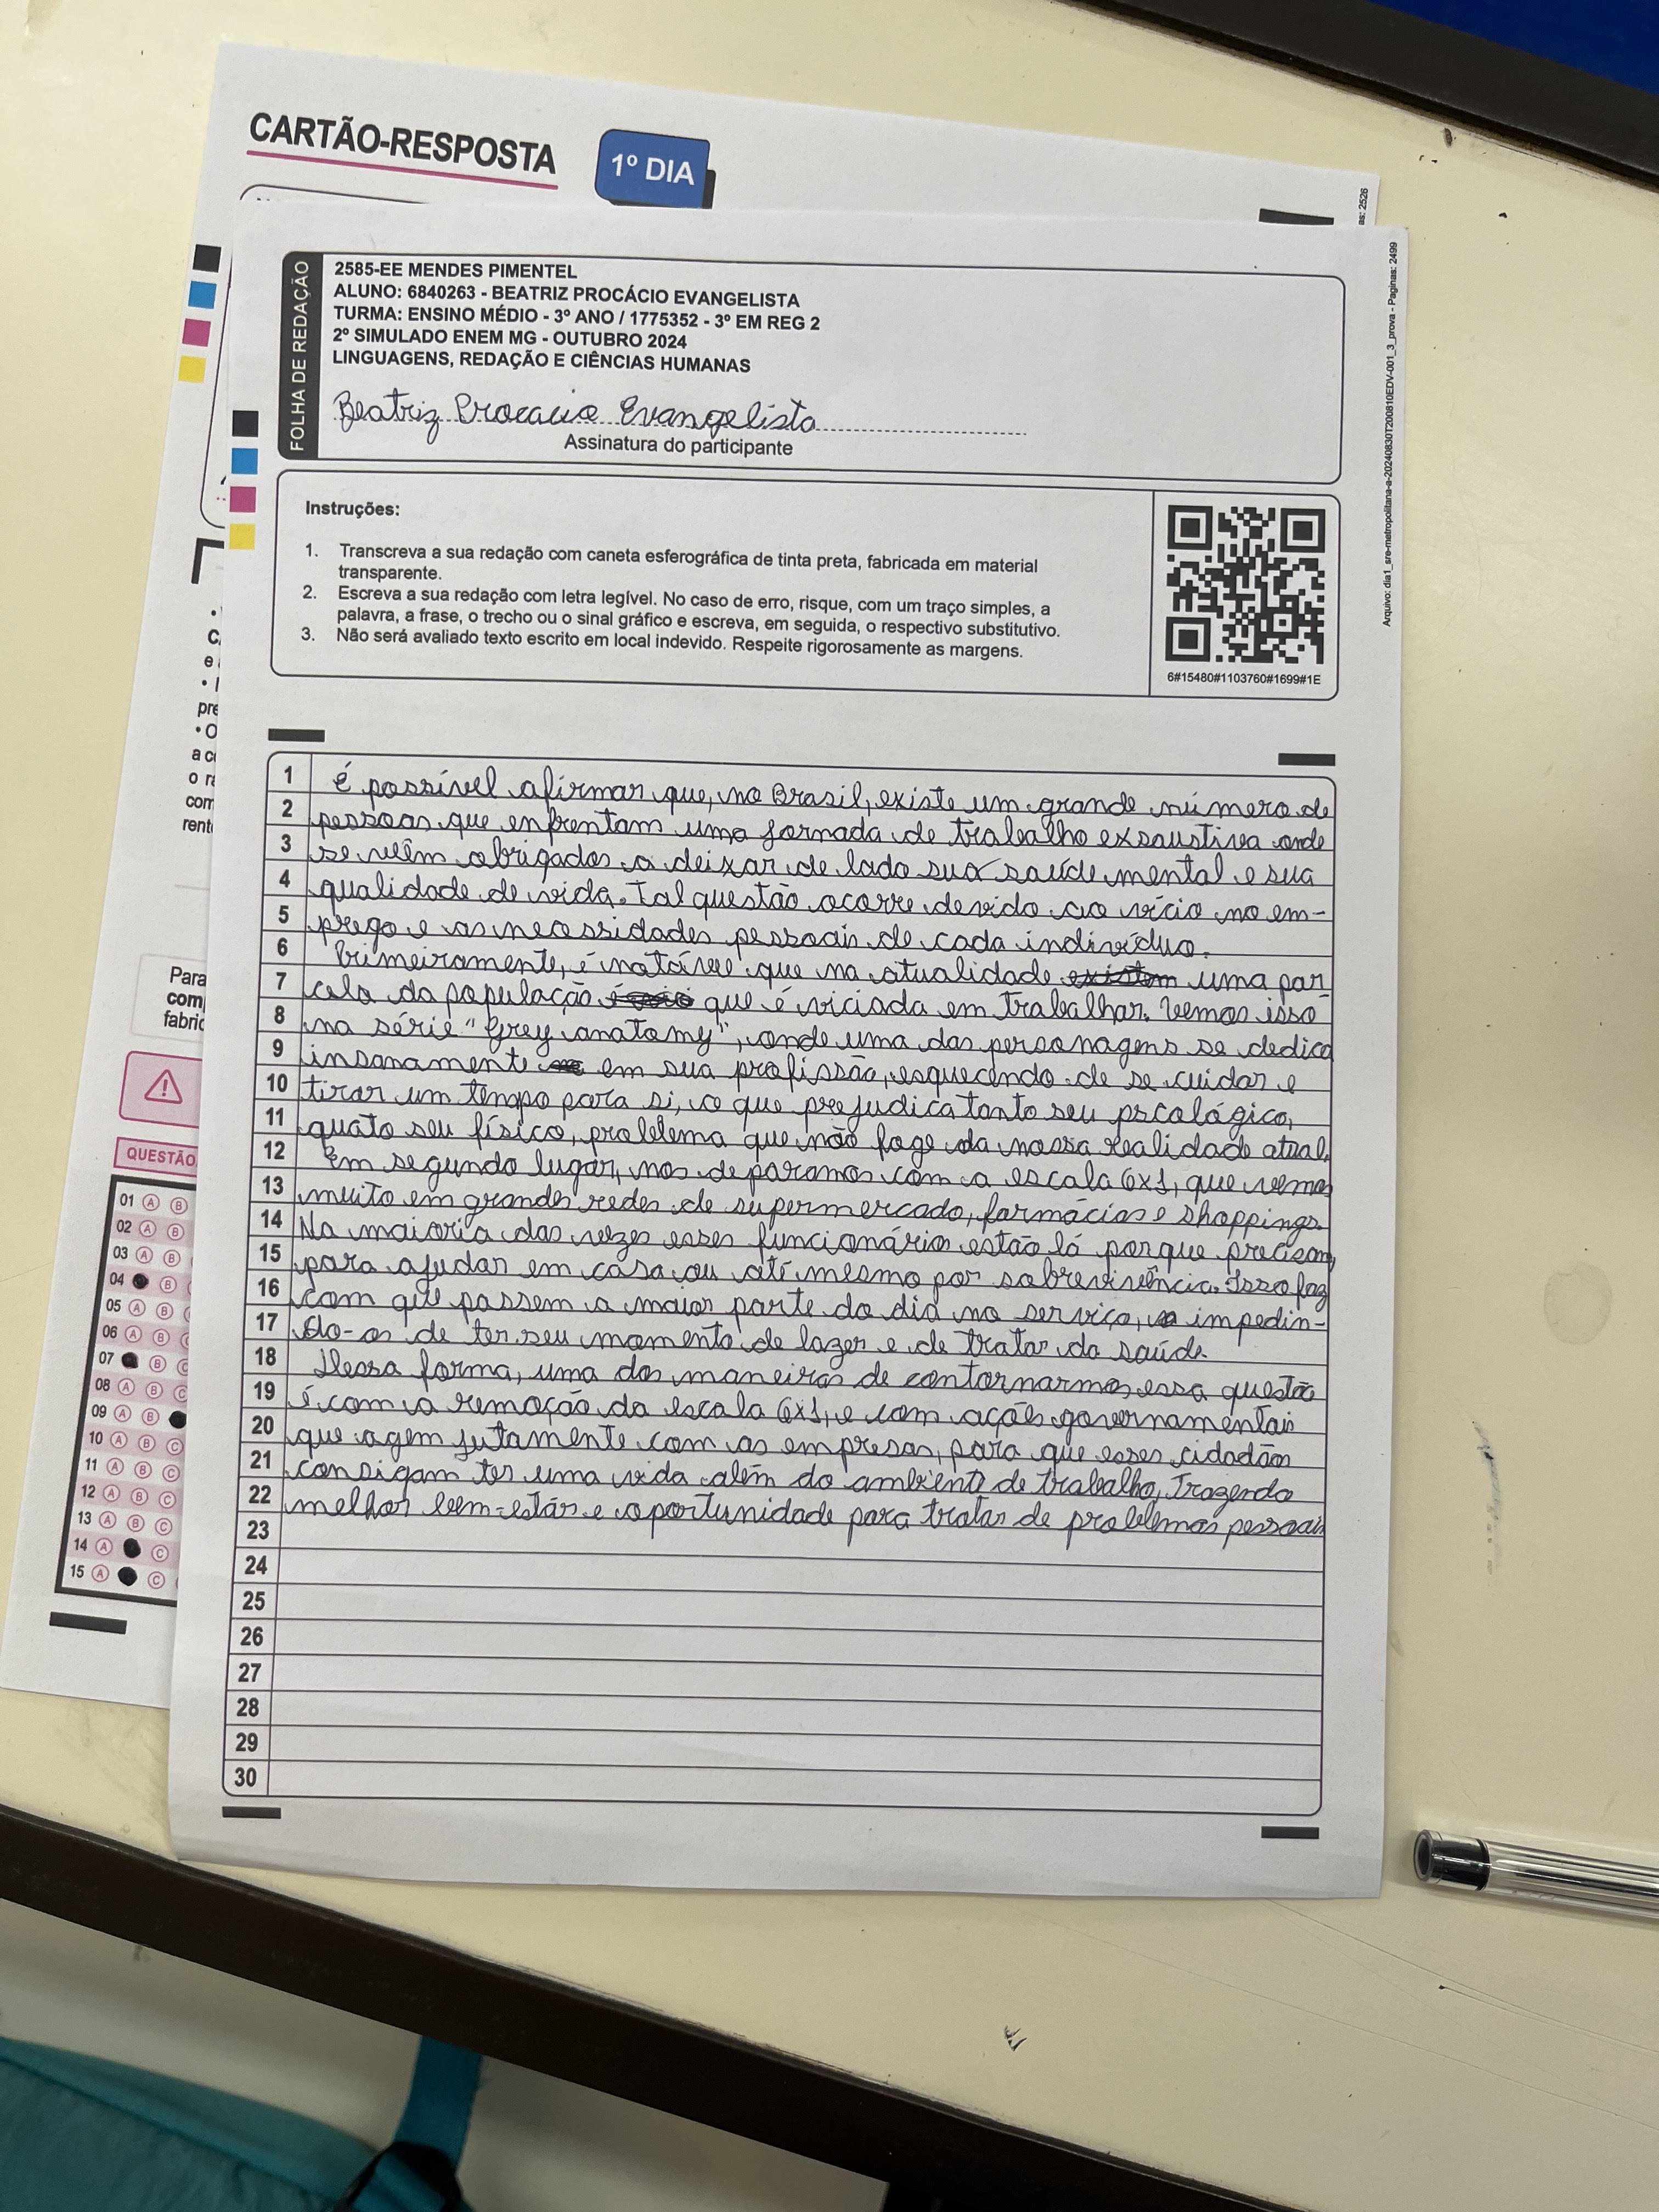 CARTÃO-RESPOSTA
1º DIA
as: 2526
FOLHA DE REDAÇÃO
2585-EE MENDES PIMENTEL
ALUNO: 6840263 - BEATRIZ PROCÁCIO EVANGELISTA
TURMA: ENSINO MÉDIO - 3º ANO / 1775352 - 3º EM REG 2
2º SIMULADO ENEM MG - OUTUBRO 2024
LINGUAGENS, REDAÇÃO E CIÊNCIAS HUMANAS
Beatriz Procacio Evangelista
Assinatura do participante
Arquivo: dia1_sre-metropolitana-a-20240830T200810EDV-001_3_prova - Paginas: 2499
Instruções:
1. Transcreva a sua redação com caneta esferográfica de tinta preta, fabricada em material
transparente.
2. Escreva a sua redação com letra legível. No caso de erro, risque, com um traço simples, a
palavra, a frase, o trecho ou o sinal gráfico e escreva, em seguida, o respectivo substitutivo.
3. Não será avaliado texto escrito em local indevido. Respeite rigorosamente as margens.
6#15480#1103760#1699#1E
1 é possível afirmar que, no Brasil, existe um grande número de
2 pessoas que enfrentam uma jornada de trabalho exsaustiva onde
3 se vêm obrigados a deixar de lado sua saúde mental e sua
4 qualidade de vida. Tal questão ocorre devido ao vício no em-
5 prego e as necessidades pessoais de cada indivíduo.
6 Primeiramente, é notável que na atualidade existem uma par
7 cela da população que é viciada em trabalhar. Vemos isso
8 na série "Grey anatomy", onde uma das personagens se dedica
9 insanamente em sua profissão, esquecendo de se cuidar e
10 tirar um tempo para si, o que prejudica tanto seu pscológico,
11 quato seu físico, problema que não foge da nossa realidade atual.
12 Em segundo lugar, nos deparamos com a escala 6x1, que vemos
13 muito em grandes redes de supermercado, farmácias e shoppings.
14 Na maioria das vezes esses funcionários estão lá porque precisam,
15 para ajudar em casa ou até mesmo por sobrevivência. Isso faz
16 com que passem a maior parte do dia no serviço, impedin-
17 do-os de ter seu momento de lazer e de tratar da saúde.
18 Dessa forma, uma das maneiras de contornarmos essa questão
19 é com a remoção da escala 6x1, e com ações governamentais
20 que agem jutamente com as empresas, para que esses cidadãos
21 consigam ter uma vida além do ambiente de trabalho, Trazendo
22 melhor bem-estar e oportunidade para tratar de problemas pessoais
23
24
25
26
27
28
29
30
Para
com
fabric
QUESTÃO
01 A B
02 A B
03 A B
04 B
05 A B
06 A B
07 B C
08 A B C
09 A B
10 A B C
11 A B C
12 A B C
13 A B C
14 A C
15 A C